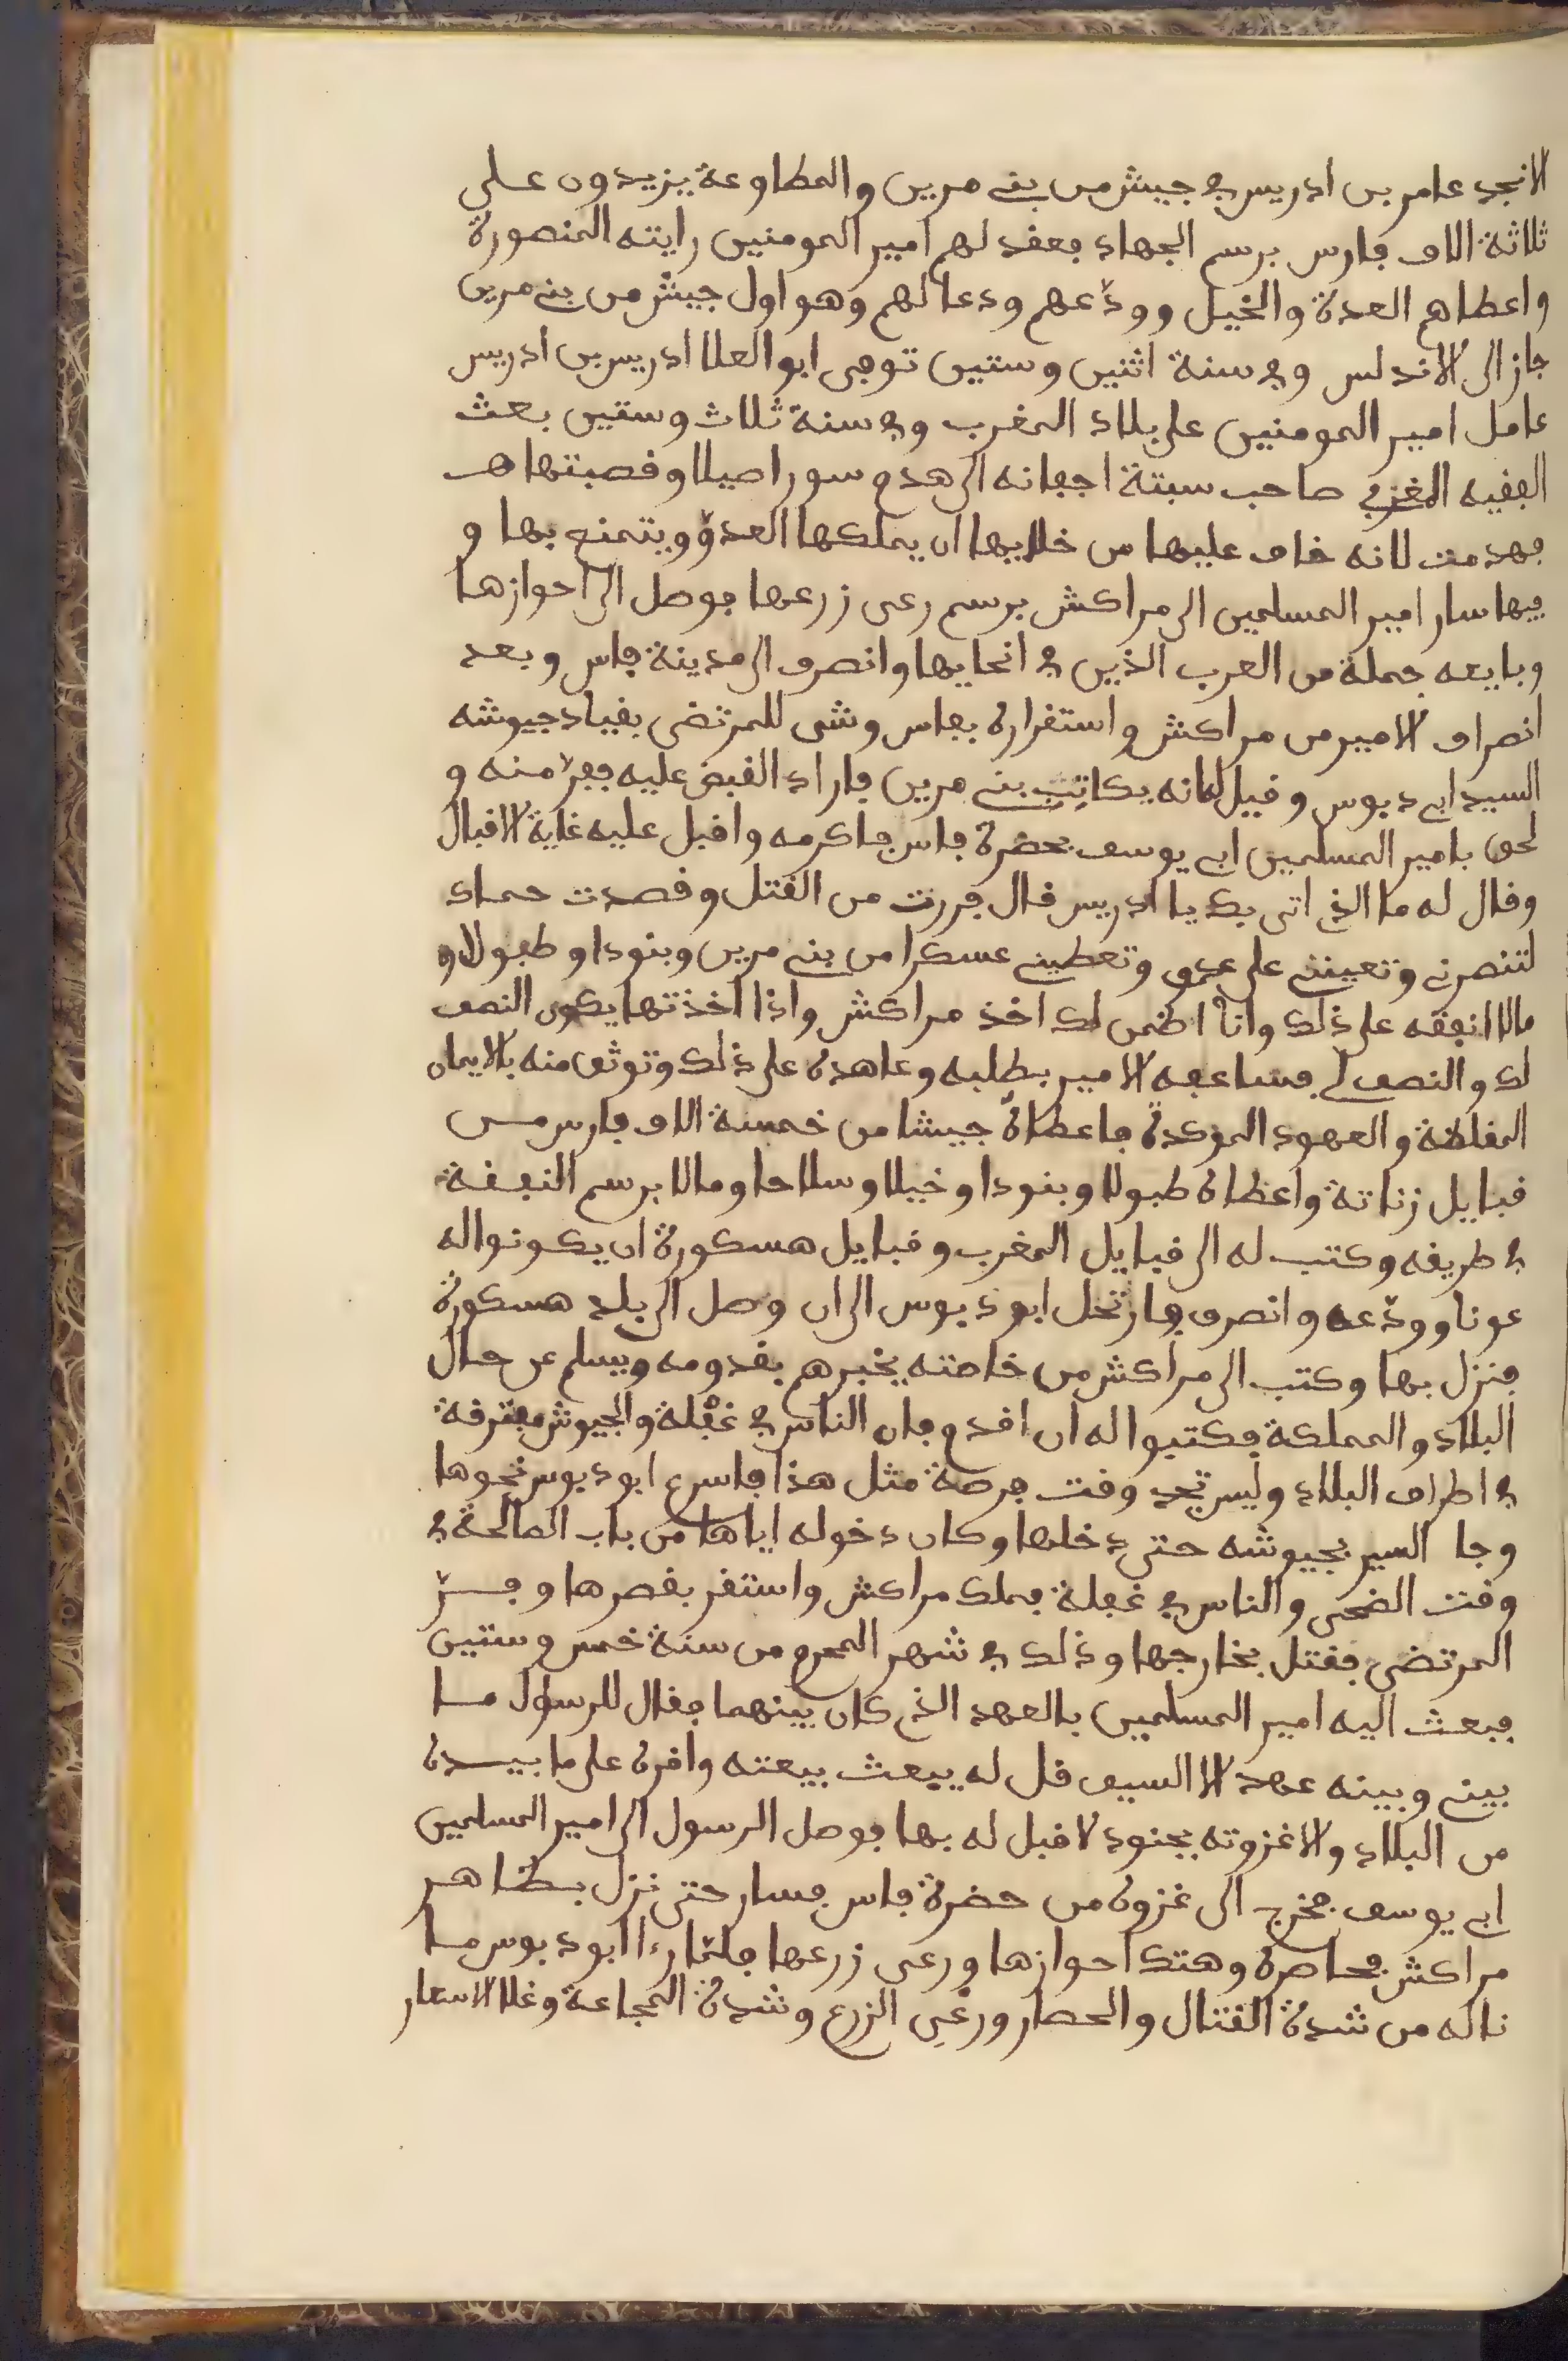 الانجد عامر بن ادريس في جيش من بني مرين والمطاوعة يزيدون على
ثلاثة الاف فارس برسم الجهاد فعقد لهم امير المومنين رايته المنصورة
واعطاهم العدة والخيل وودّعهم ودعا لهم وهو اول جيش من بني مرين
جاز الى الاندلس وفي سنة اثنين وستين توفى ابو العلا ادريس بن ادريس
عامل امير المومنين على بلاد المغرب وفي سنة ثلاث وستين بعث
الفقيه العزفي صاحب سبتة اجفانه الى هدم سور اصيلا وقصبتها
فهدمت لانه خاف عليها من خلايها ان يملكها العدوّ ويتمنع بها و
فيها سار امير المسلمين الى مراكش برسم رعى زرعها فوصل الى احوازها
وبايعه جملة من العرب الذين في انحايها وانصرف الى مدينة فاس وبعد
انصراف الامير من مراكش واستقراره بفاس وشى للمرتضى بقياد جيوشه
السيد ابي دبوس وقيل له انه يكاتِب بني مرين فاراد القبض عليه ففرّ منه و
لحق بامير المسلمين ابي يوسف بحضرة فاس فاكرمه واقبل عليه غاية الاقبال
وقال له ما الذي اتى بك يا ادريس قال فررت من القتل وقصدت حماك
لتنصرني وتعينني على عدوي وتعطيني عسكرا من بني مرين وبنودا وطبولا و
مالا انفقه على ذلك وانا اضمن لك اخذ مراكش واذا اخذتها يكون النصف
لك والنصف لي فساعفه الامير بطلبه وعاهده على ذلك وتوثق منه بالايمان
المغلظة والعهود الموكدة فاعطاه جيشا من خمسة الاف فارس من
قبايل زناتة واعطاه طبولا وبنودا وخيلا وسلاحا ومالا برسم النفقة
في طريقه وكتب له الى قبايل المغرب وقبايل هسكورة ان يكونوا له
عونا وودّعه وانصرف فارتحل ابو دبوس الى ان وصل الى بلد هسكورة
فنزل بها وكتب الى مراكش من خاصته يخبرهم بقدومه ويسلم عن حال
البلاد والمملكة فكتبوا له ان اقدم فان الناس في غفْلة والجيوش مفترقة
في اطراف البلاد وليس تجد وقت فرصة مثل هذا فاسرع ابو دبوس نحوها
وجا السير بجيوشه حتى دخلها وكان دخوله اياها من باب الصالحة في
وقت الضحى والناس في غفلة فملك مراكش واستقر بقصرها وفرّ
المرتضى فقتل بخارجها وذلك في شهر المحرم من سنة خمس وستين
فبعث اليه امير المسلمين بالعهد الذي كان بينهما فقال للرسول ما
بيني وبينه عهد الا السيف قل له يبعث بيعته واقره على ما بيده
من البلاد والا غزوته بجنود لا قبل له بها فوصل الرسول الى امير المسلمين
ابي يوسف فخرج الى غزوه من حضرة فاس فسار حتى نزل بظاهر
مراكش فحاصره وهتك احوازها ورعى زرعها فلمّا رءا ابو دبوس ما
ناله من شدة القتال والحصار ورعْي الزرع وشدة المجاعة وغلا الاسعار